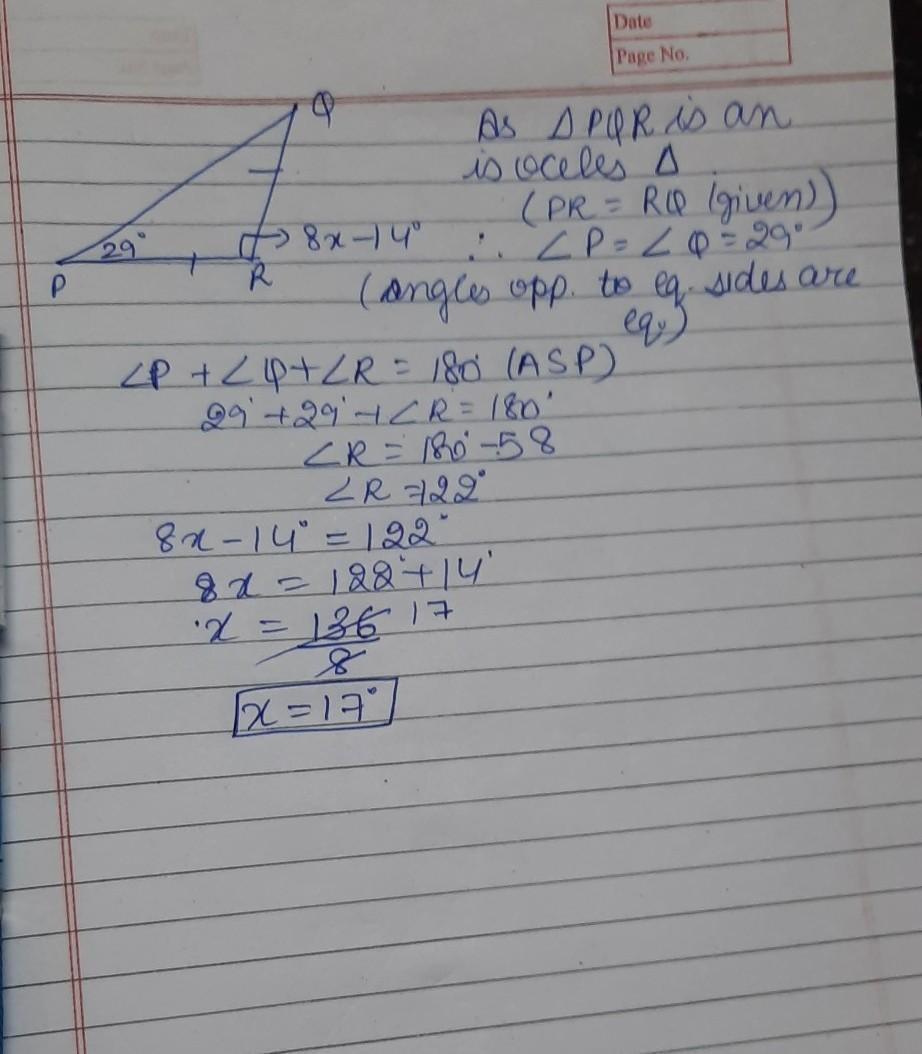 Date
Page No.
Q
As △PQR is an
isoceles △
(PR = RQ (given))
29° → 8x-14° ∴ ∠P = ∠Q = 29°
P R (Angles opp. to eq. sides are
eq.)
∠P + ∠Q + ∠R = 180° (ASP)
29° + 29° + ∠R = 180°
∠R = 180° - 58
∠R = 122°
8x - 14° = 122°
8x = 122° + 14°
x = 136 17
8
x = 17°